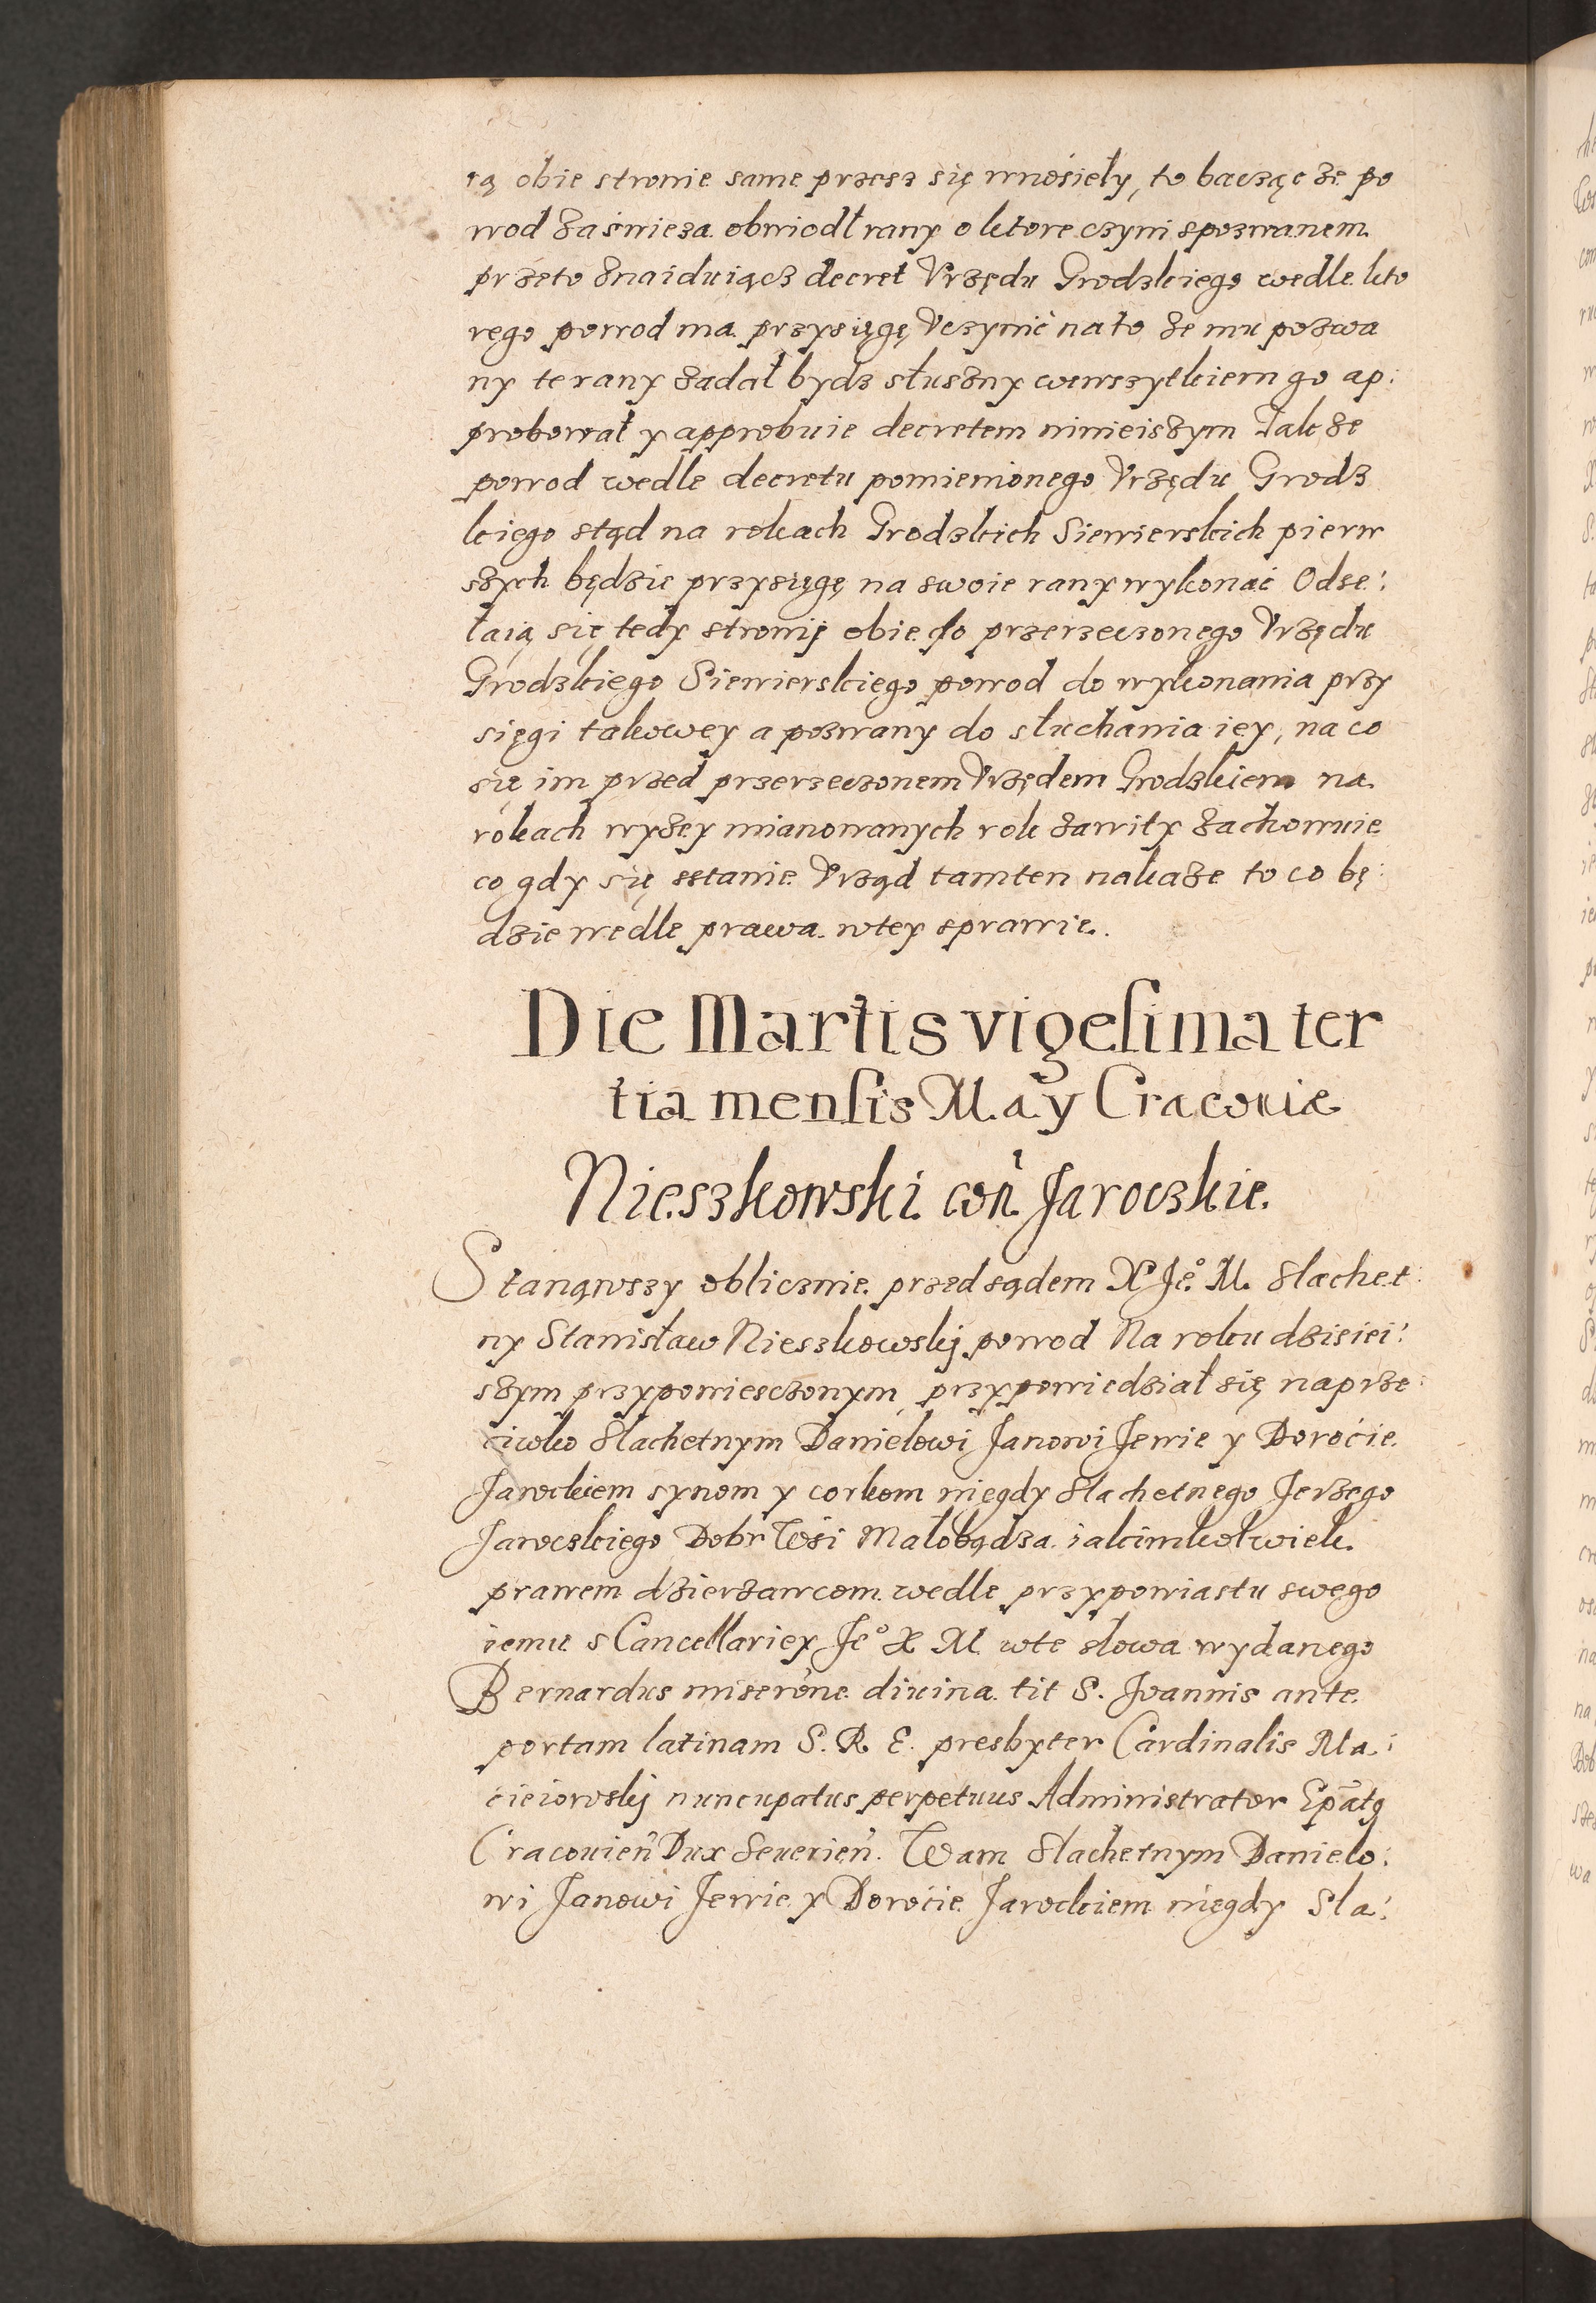 rą obie stronie same przesz się wnosieły, to bacząc że po
wod zaświeża obwiodł rany o które czyni spozwanem
przeto znaiduiącz decret Vrzędu Grodzkiego wedle kto
rego powod ma przysięgę Vczynić na to że mu pozwa
ny te rany zadał bydz słuszny wewszytkiem go ap:
probował y approbuie decretem ninieiszym Tak że
powod wedle decretu pomienionego Vrzędu Grodz
kiego stąd na rokach Grodzkich Siewierskich pierw
szych będzie przysięgę na swoie rany wykonać Odse:
łaią się tedy stronij obie do przerzeczonego Vrzędu
Grodzkiego Siewierskiego powod do wykonania przy
sięgi takowey a pozwany do słuchania iey, na co
się im przed przerzeczonem Vrzędem Grodzkiem na
rokach wyżey mianowanych rok zawity zachowuie
co gdy się sstanie Vrząd tamten nakaże to co bę:
dzie wedle prawa wtey sprawie.
Die Martis vigesima ter
tia mensis May Cracouiæ
Nieszkowski con Jaroczkie.
Stanąwszy oblicznie przed sądem X Je° M. Slachet:
ny Stanisław Nieszkowskij powod Na roku dzisiei:
szym przypowiesczonym, przypowiedział się naprze:
ciwko Slachetnym Danielowi Janowi Jewie y Dorocie
Jarockiem synom y corkom niegdy Slachetnego Jerzego
Jarocskiego Dobr Wsi Małobądza iakimkolwiek
prawem dzierzawcom wedle przypowiastu swego
iemu s Cancellariey Je° X M wte słowa wydanego
Bernardus miserône diuina tit S. Joannis ante
portam latinam S. R. E. presbyter Cardinalis Ma:
cieiowskij nuncupatus perpetuus Administrator Epātq
Cracouien Dux Seuerien. Wam Slachetnym Danielo:
wi Janowi Jewie y Dorocie Jarockiem niegdy Sla: